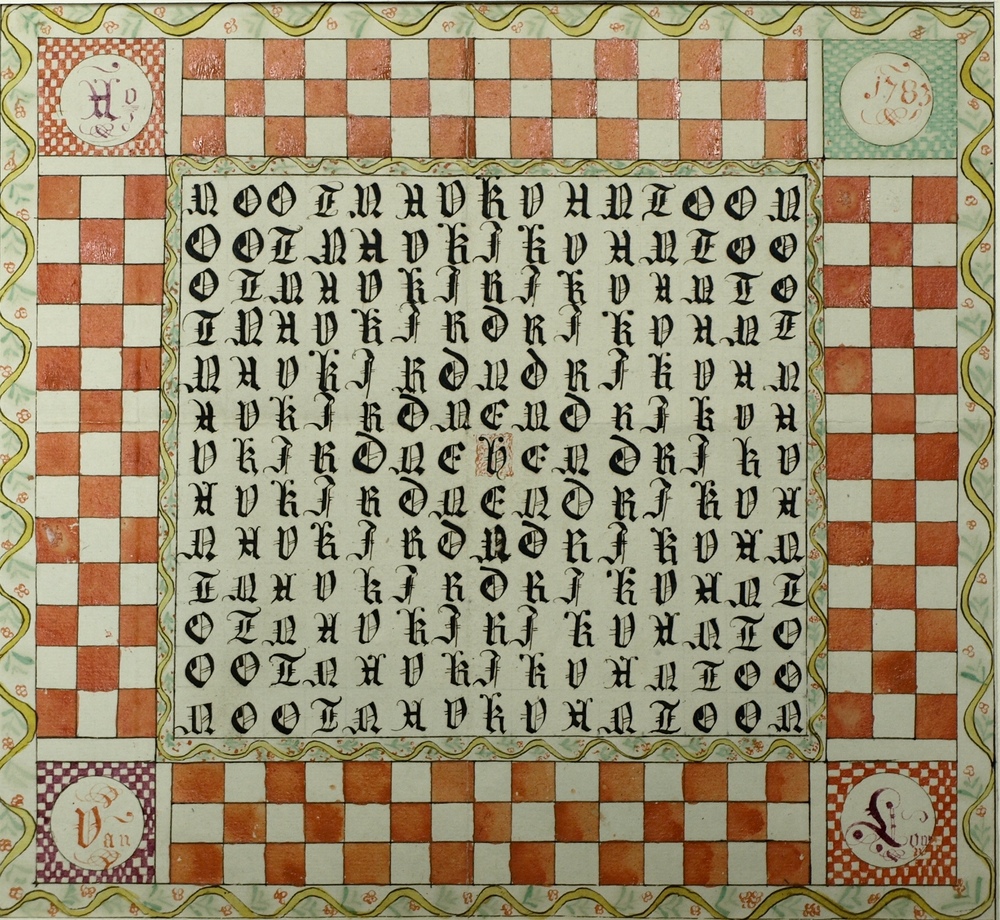 Ao 1783
N O O T N A V K V A N T O O N
O O T N A V K I K V A N T O O
O T N A V K I R I K V A N T O
T N A V K I R D R I K V A N T
N A V K I R D N D R I K V A N
A V K I R D N E N D R I K V A
V K I R D N E H E N D R I K V
A V K I R D N E N D R I K V A
N A V K I R D N D R I K V A N
T N A V K I R D R I K V A N T
O T N A V K I R I K V A N T O
O O T N A V K I K V A N T O O
N O O T N A V K V A N T O O N
Van